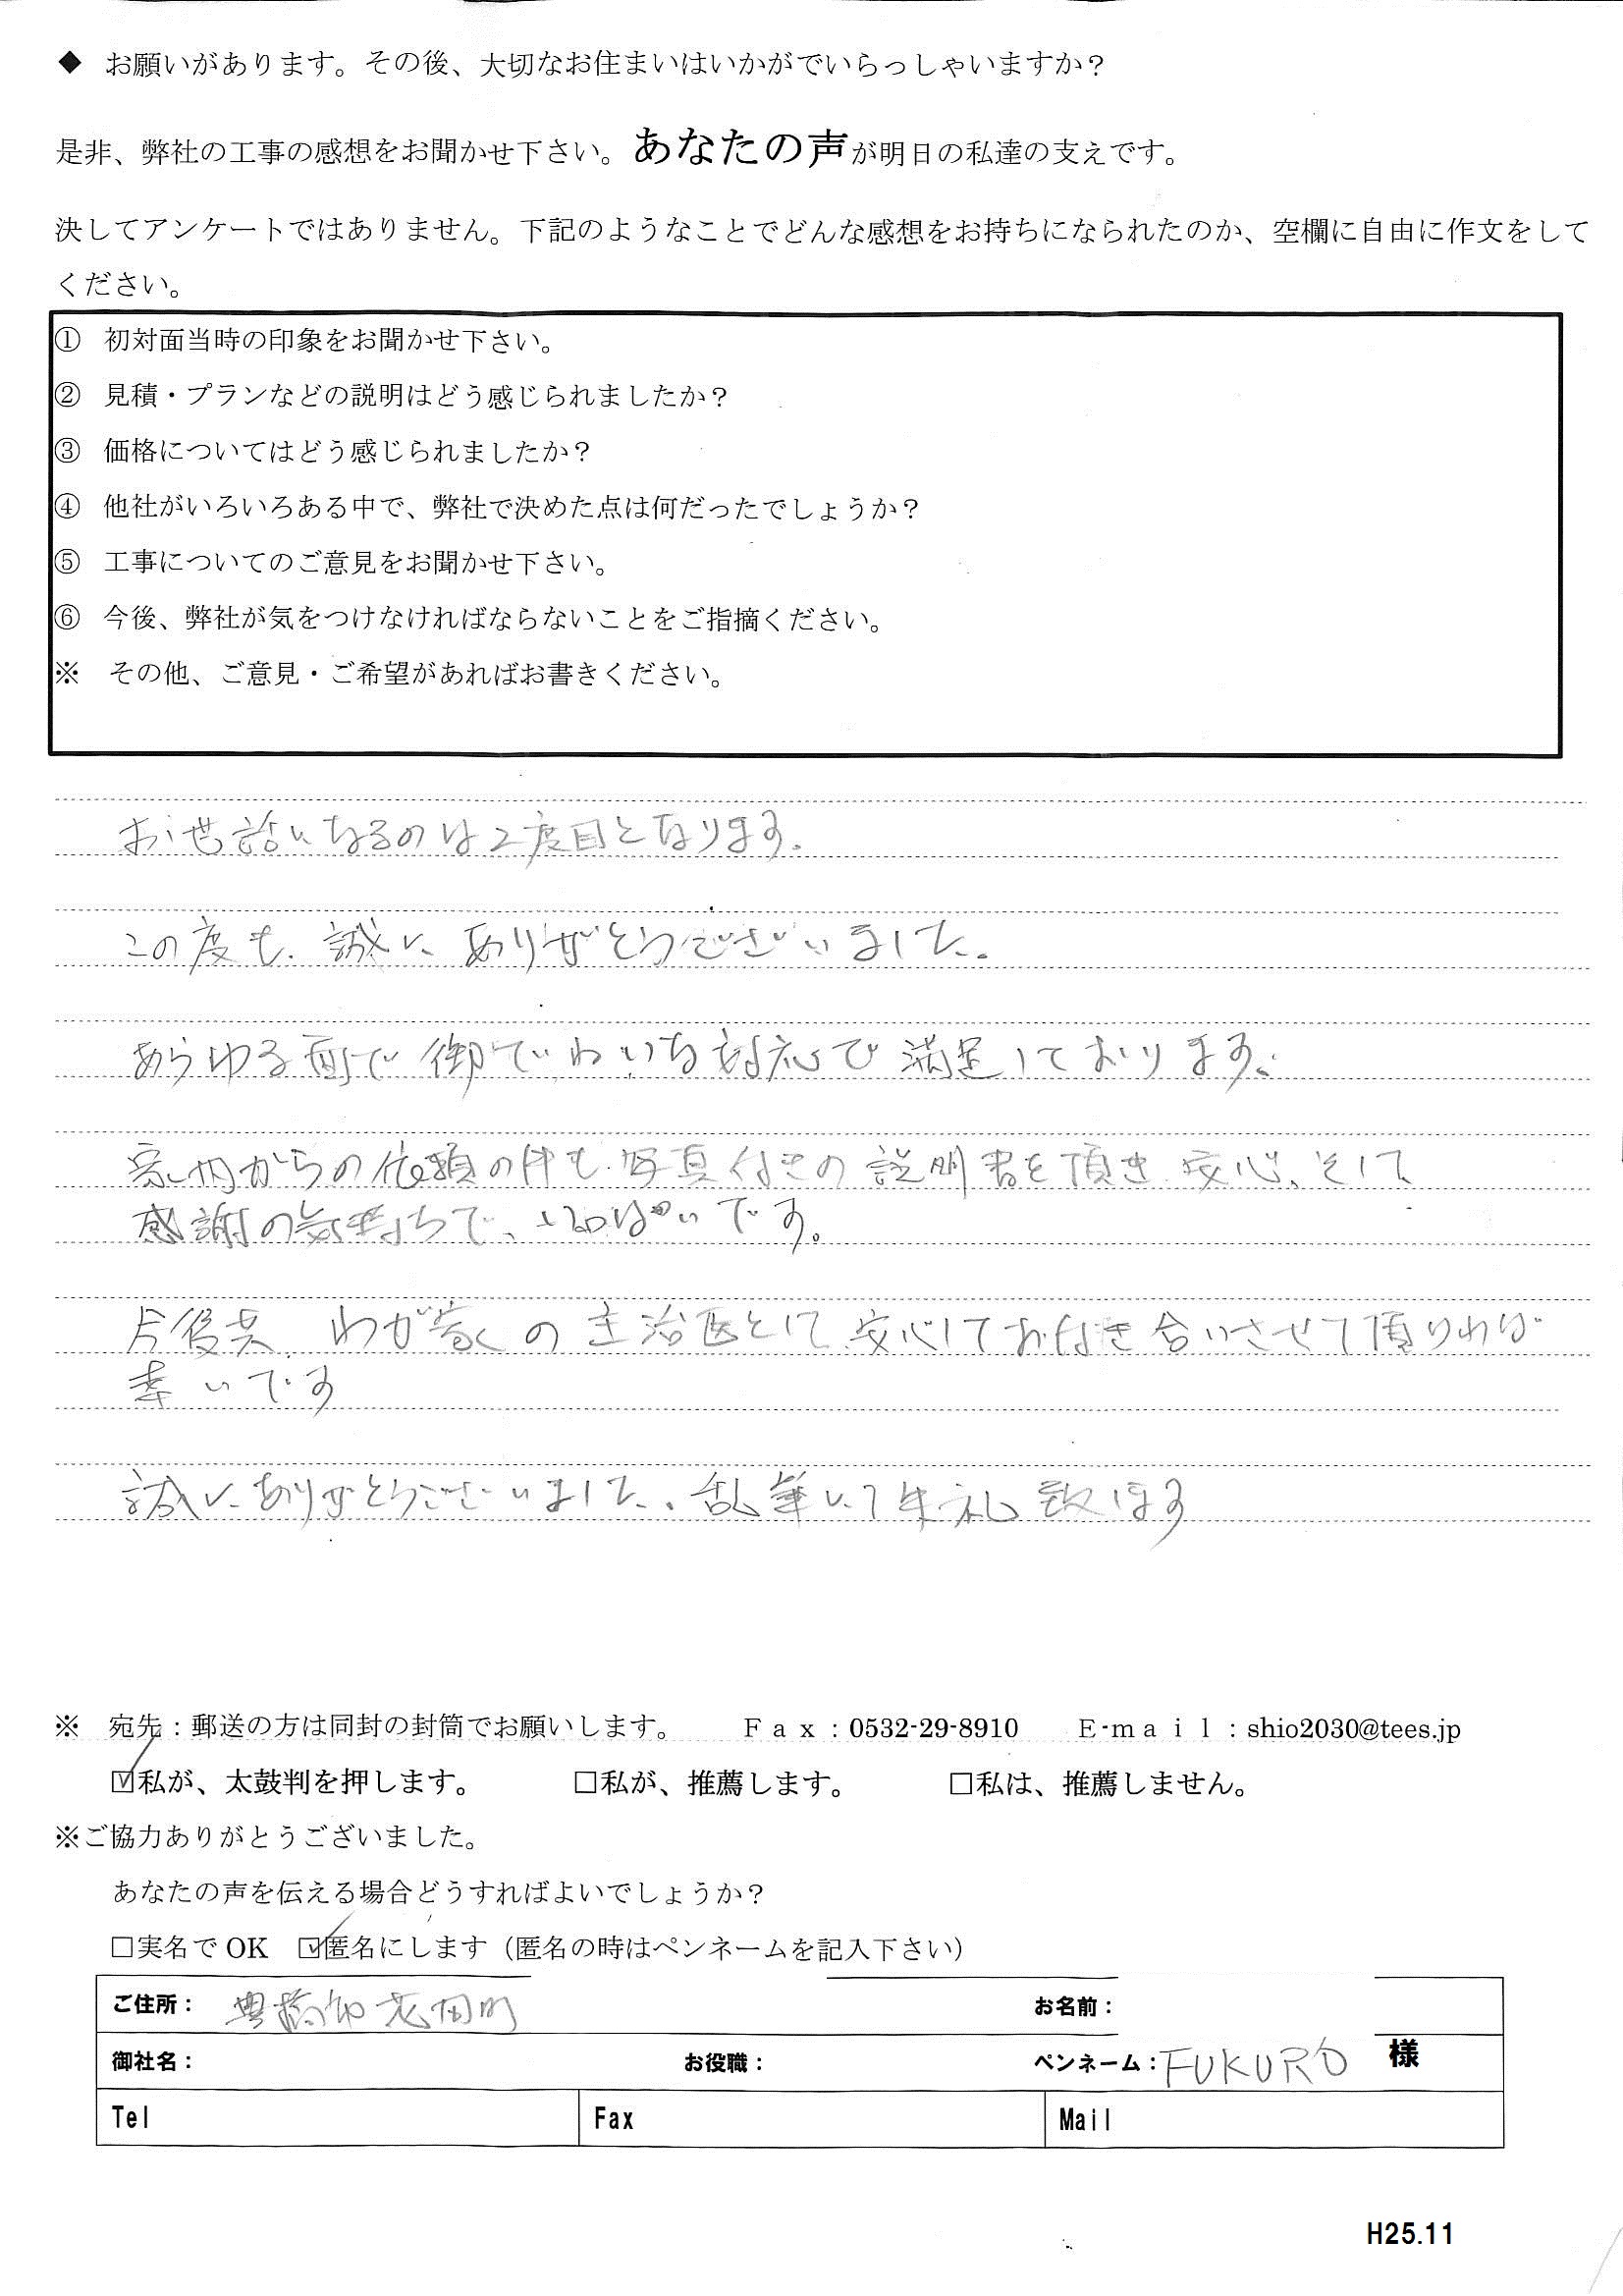 ◆ お願いがあります。その後、大切なお住まいはいかがでいらっしゃいますか？
是非、弊社の工事の感想をお聞かせ下さい。あなたの声が明日の私達の支えです。
決してアンケートではありません。下記のようなことでどんな感想をお持ちになられたのか、空欄に自由に作文をして
ください。
① 初対面当時の印象をお聞かせ下さい。
② 見積・プランなどの説明はどう感じられましたか？
③ 価格についてはどう感じられましたか？
④ 他社がいろいろある中で、弊社で決めた点は何だったでしょうか？
⑤ 工事についてのご意見をお聞かせ下さい。
⑥ 今後、弊社が気をつけなければならないことをご指摘ください。
※ その他、ご意見・ご希望があればお書きください。
お世話になるのは2度目となります。
この度も、誠に、ありがとうございました。
あらゆる面で御ていねいな対応で満足しております。
家内からの依頼の件も、写真付きの説明書を頂き、安心、そして
感謝の気持ちで、いっぱいです。
今後共、わが家の主治医として、安心してお付き合いさせて頂ければ
幸いです
誠にありがとうございました。乱筆にて失礼致します
※ 宛先：郵送の方は同封の封筒でお願いします。 Ｆａｘ：0532-29-8910 Ｅ-ｍａｉｌ：shio2030@tees.jp
☑私が、太鼓判を押します。 □私が、推薦します。 □私は、推薦しません。
※ご協力ありがとうございました。
あなたの声を伝える場合どうすればよいでしょうか？
□実名で OK ☑匿名にします（匿名の時はペンネームを記入下さい）
ご住所： 豊橋市 お名前：
御社名： お役職： ペンネーム：FUKURO 様
Tel Fax Mail
H25.11